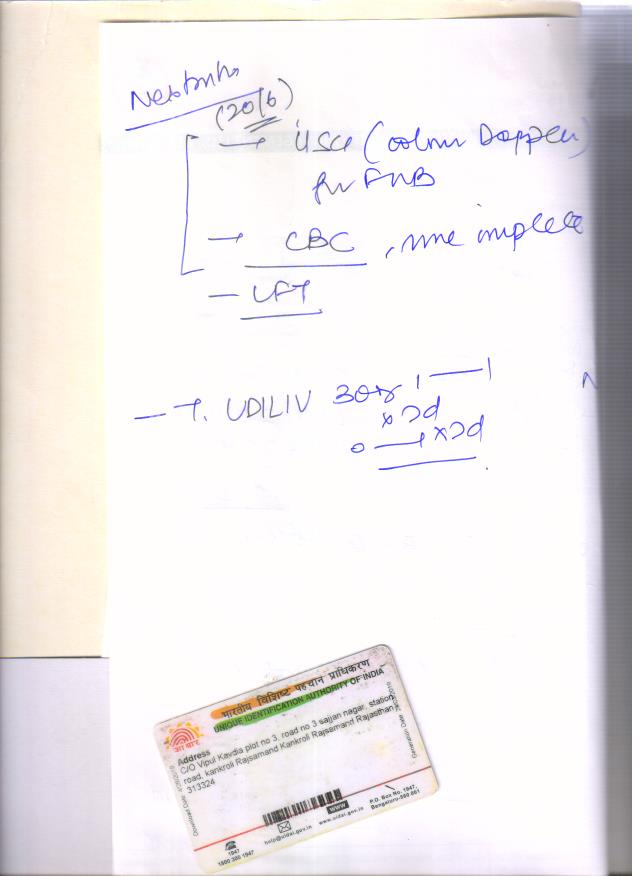 (2016)
→ USG (colour Doppler)
for FWB
→ CBC, urine complete
— LFT
— T. UDILIV 300 1 — 1
x 7d
0 — x7d
भारतीय विशिष्ट पहचान प्राधिकरण
UNIQUE IDENTIFICATION AUTHORITY OF INDIA
आधार
Address
C/O Vipul Kavdia plot no 3, road no 3 sajjan nagar, station
road, kankroli Rajsamand Kankroli Rajsamand Rajasthan
313324
1947
1800 300 1947
help@uidai.gov.in
WWW
www.uidai.gov.in
P.O. Box No. 1947,
Bengaluru-560 001